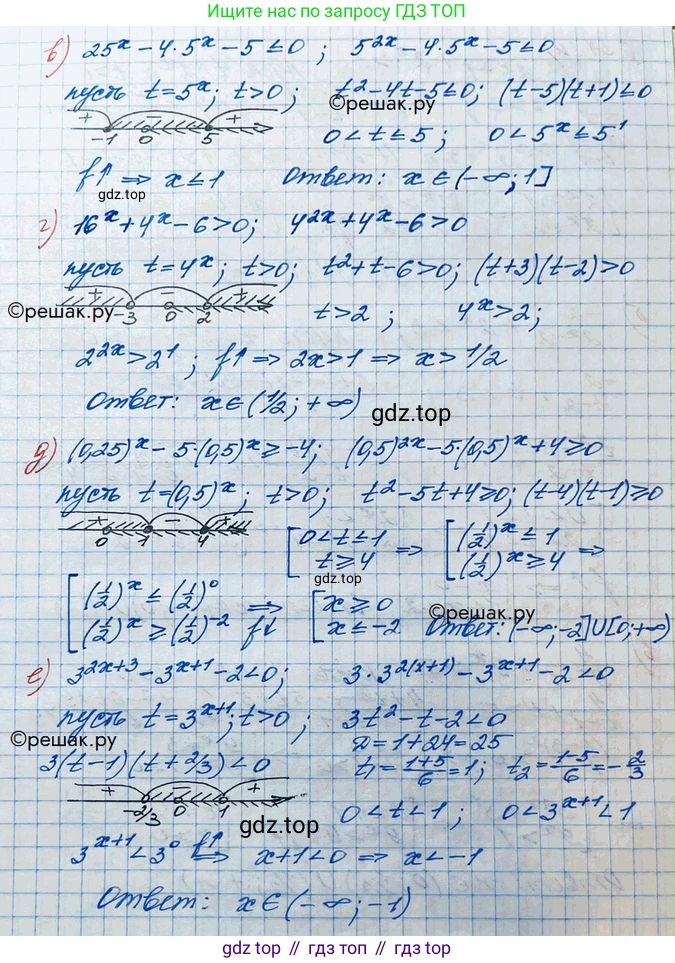 Ищите нас по запросу ГДЗ ТОП
в) 25ˣ − 4·5ˣ − 5 ≤ 0 ; 5²ˣ − 4·5ˣ − 5 ≤ 0
пусть t = 5ˣ; t > 0 ; t² − 4t − 5 ≤ 0; (t−5)(t+1) ≤ 0
©решак.ру
+ + −1 0 5 0 < t ≤ 5 ; 0 < 5ˣ ≤ 5¹
f↑ ⇒ x ≤ 1 Ответ: x ∈ (−∞; 1]
gdz.top
г) 16ˣ + 4ˣ − 6 > 0; 4²ˣ + 4ˣ − 6 > 0
пусть t = 4ˣ; t > 0; t² + t − 6 > 0; (t+3)(t−2) > 0
©решак.ру + − + −3 0 2 t > 2 ; 4ˣ > 2;
2²ˣ > 2¹ ; f↑ ⇒ 2x > 1 ⇒ x > 1/2
Ответ: x ∈ (1/2; +∞)
gdz.top
д) (0,25)ˣ − 5·(0,5)ˣ ≥ −4; (0,5)²ˣ − 5·(0,5)ˣ + 4 ≥ 0
пусть t = (0,5)ˣ; t > 0; t² − 5t + 4 ≥ 0; (t−4)(t−1) ≥ 0
+ − + 0 1 4 [0 < t ≤ 1 ⇒ [(1/2)ˣ ≤ 1
t ≥ 4 (1/2)ˣ ≥ 4 ⇒
gdz.top
[(1/2)ˣ ≤ (1/2)⁰ ⇒ [x ≥ 0
©решак.ру
(1/2)ˣ ≥ (1/2)⁻² f↓ x ≤ −2 Ответ: (−∞; −2]U[0; +∞)
е) 3²ˣ⁺³ − 3ˣ⁺¹ − 2 < 0; 3·3²⁽ˣ⁺¹⁾ − 3ˣ⁺¹ − 2 < 0
пусть t = 3ˣ⁺¹; t > 0 ; 3t² − t − 2 < 0
©решак.ру D = 1 + 24 = 25
3(t−1)(t + 2/3) < 0 t₁ = (1+5)/6 = 1; t₂ = (1−5)/6 = −2/3
+ − + −2/3 0 1 0 < t < 1 ; 0 < 3ˣ⁺¹ < 1
gdz.top
3ˣ⁺¹ < 3⁰ f↑ ⇒ x+1 < 0 ⇒ x < −1
Ответ: x ∈ (−∞; −1)
gdz.top // гдз.топ // gdz.top